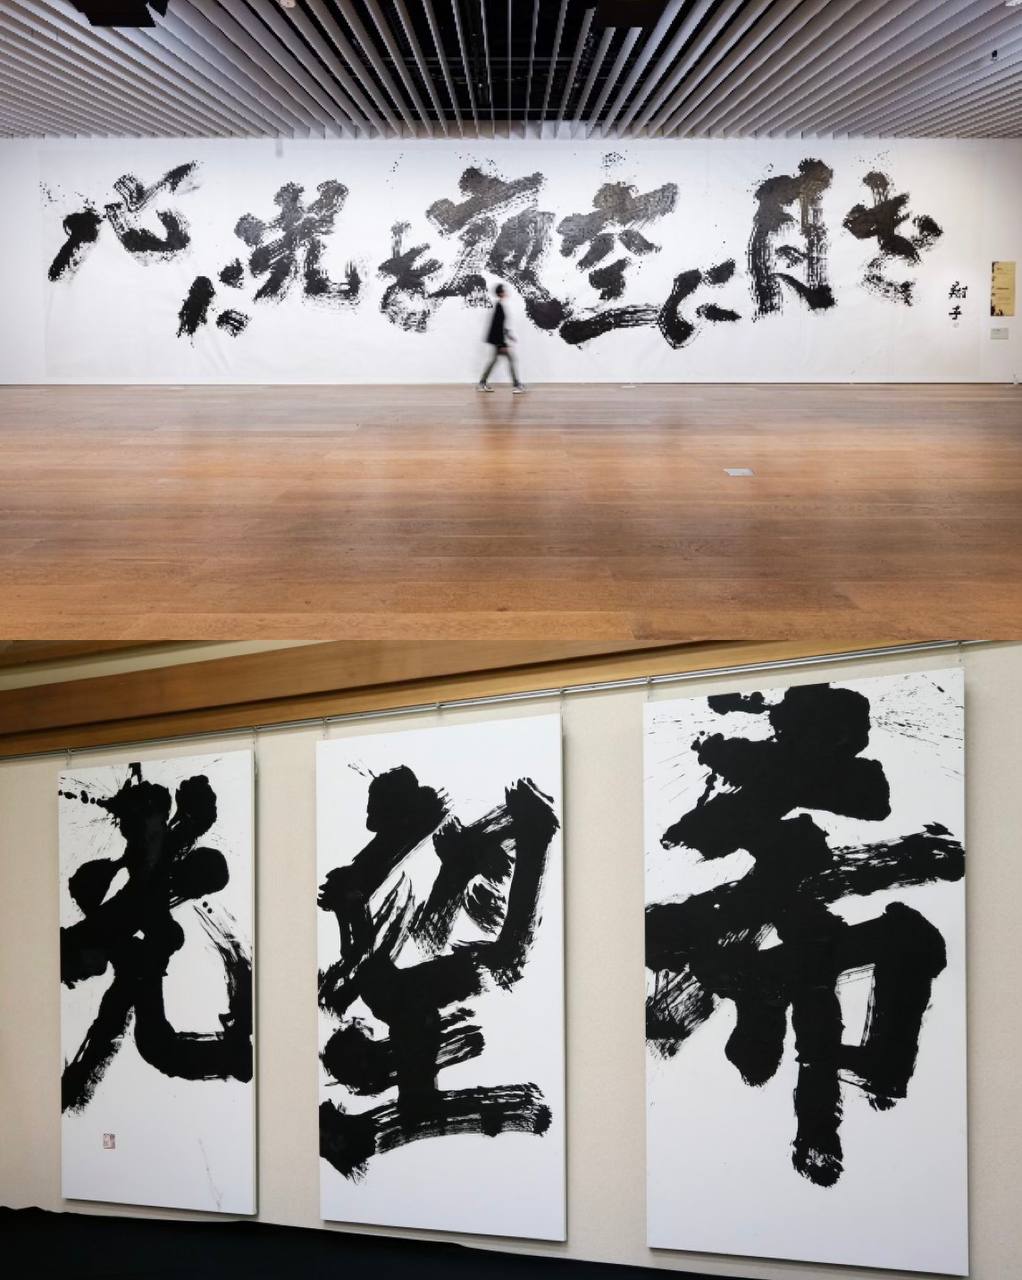 心 を 夜空に月を
翔子
希望光